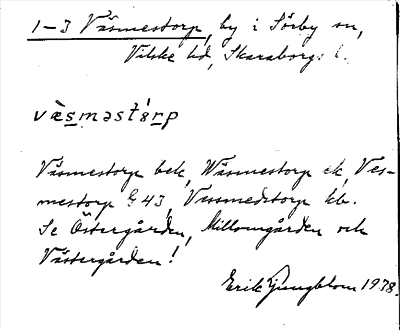 1-3 Väsmestorp, by i Sörby sn,
Vilske hd, Skaraborgs l.
væ̀sməstórp
Väsmestorp bek, Wäsmestorp ek, Ves-
mestorp G 43, Vessmedstorp kb.
Se Östergården, Millomgården och
Västergården!
Erik Ljungblom 1978.